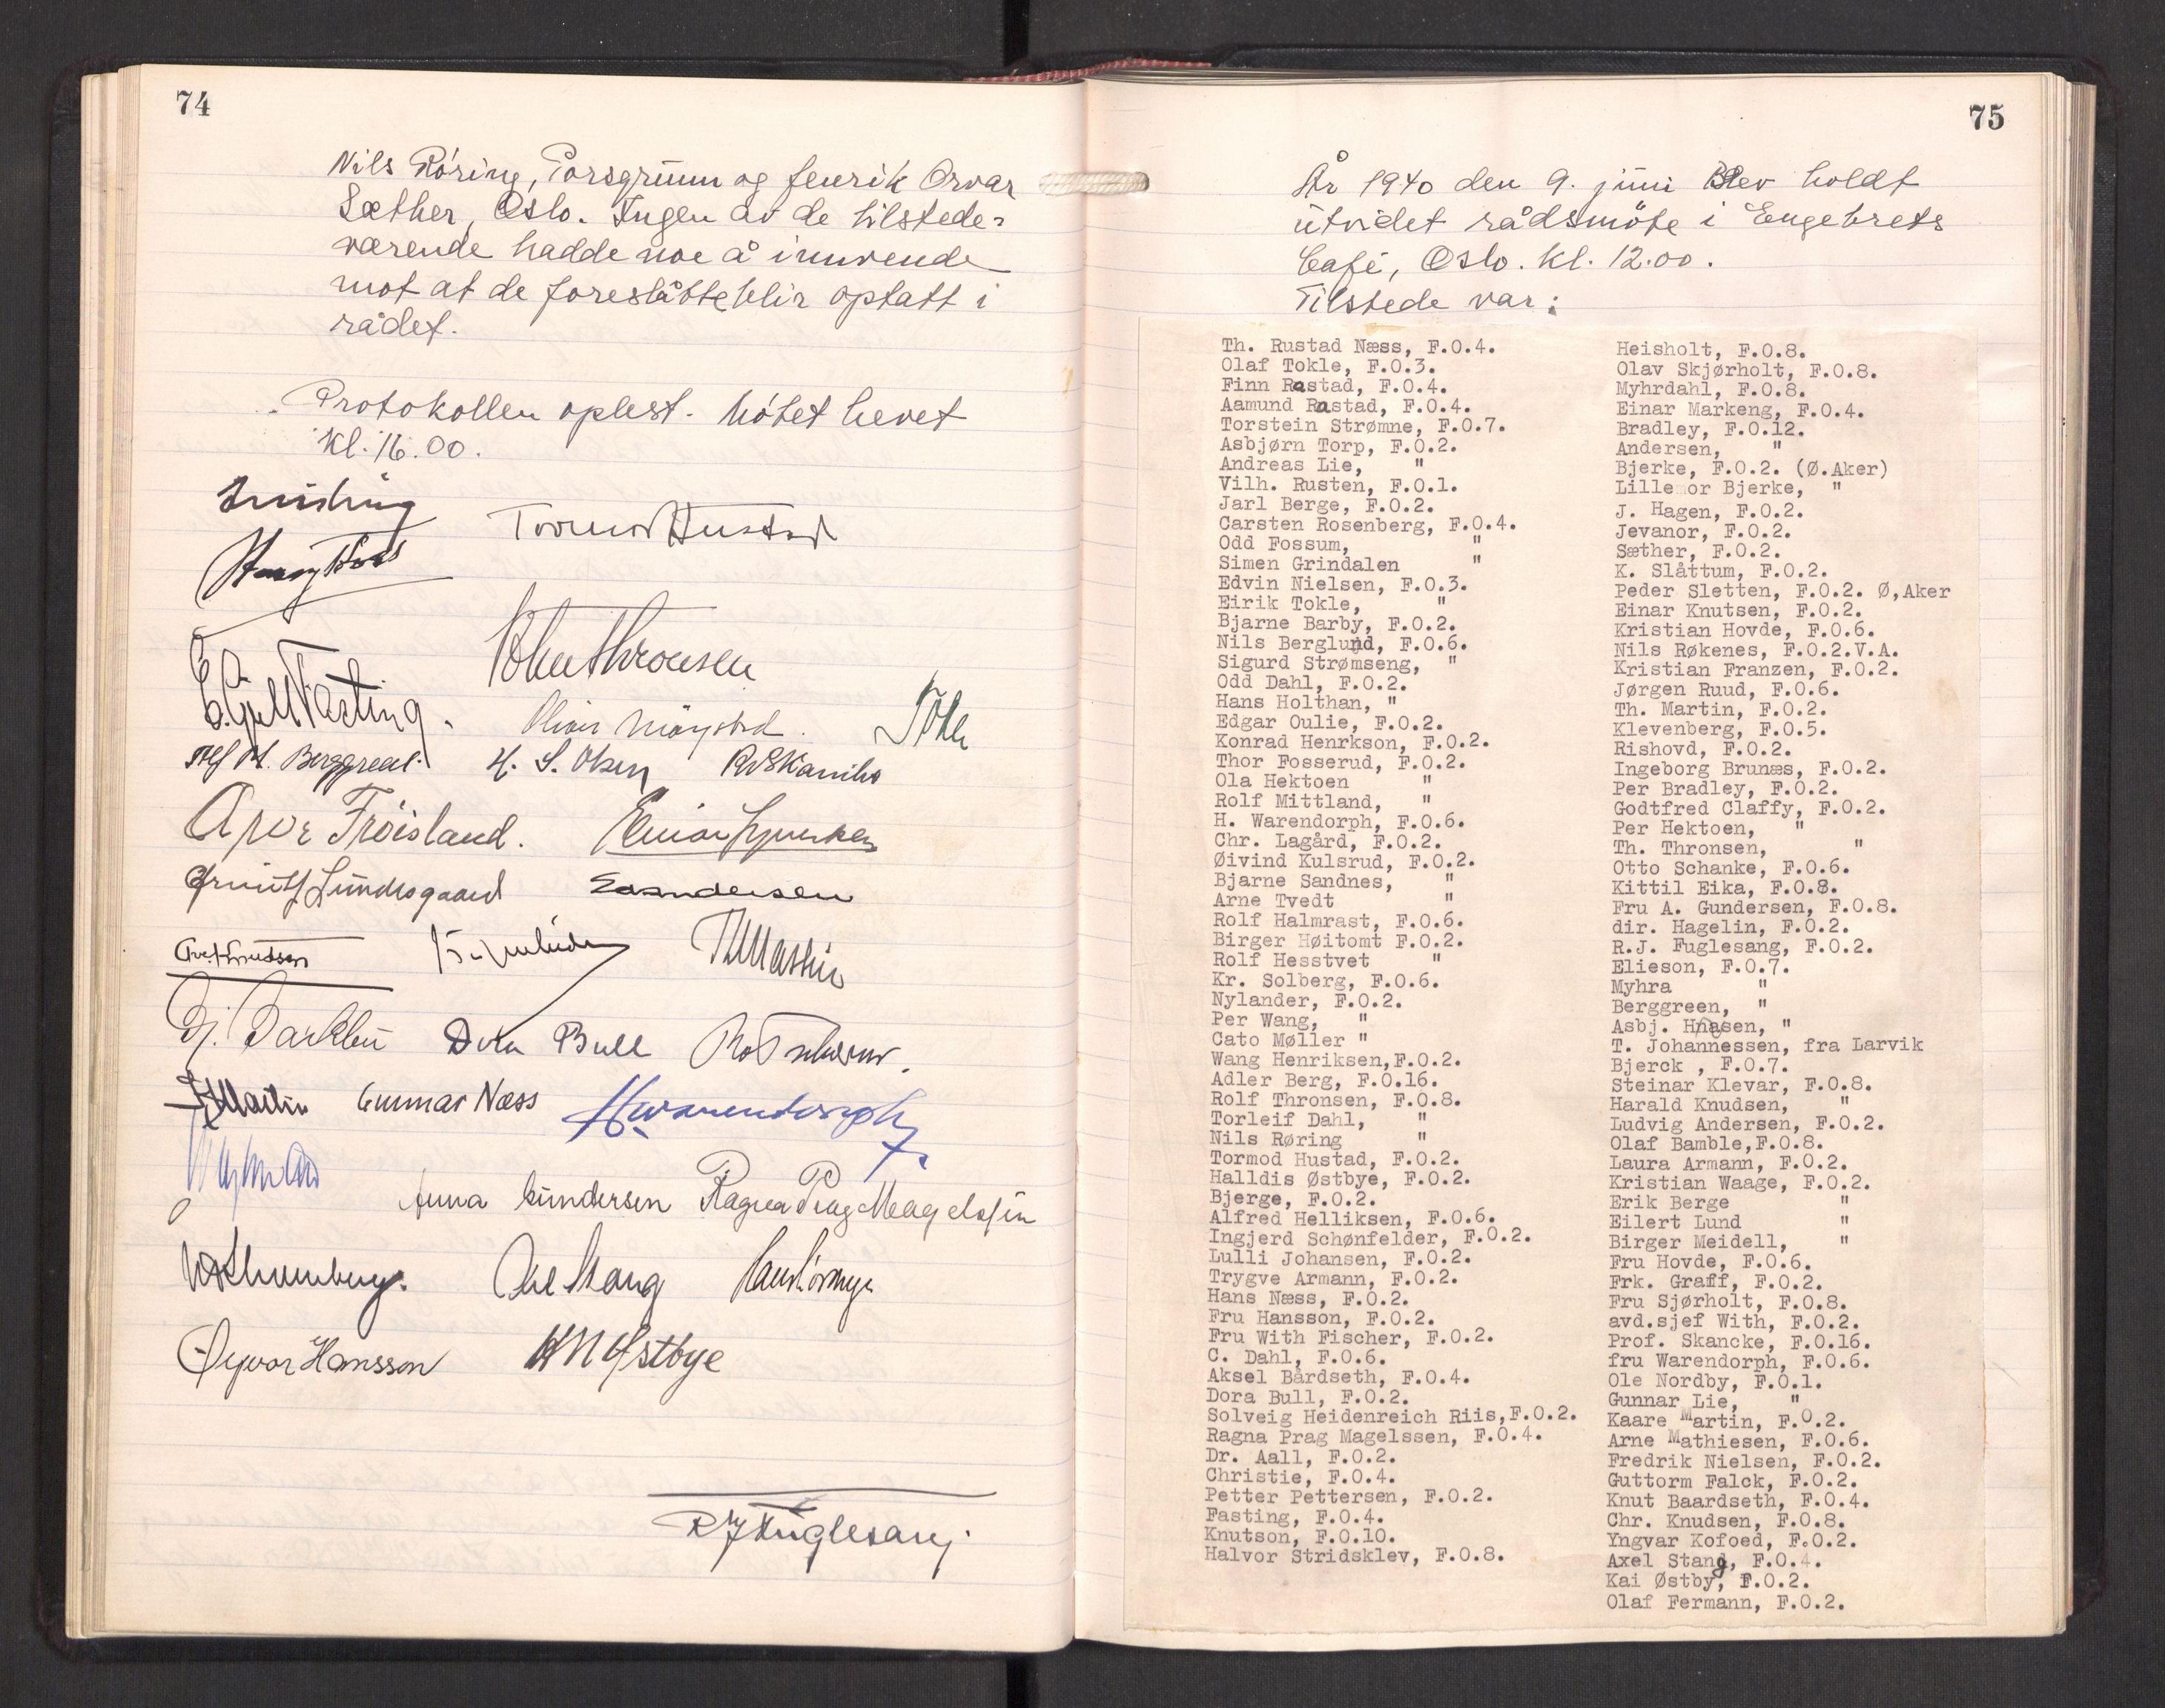 74
Nils Röring, Porsgrunn og fenrik Orvar
Sæther, Oslo. Ingen av de tilstede-
værende hadde noe å innvende
mot at de foreslåtte blir optatt i
rådet.
Protokollen oplest. Mötet hevet
kl. 16.00.
Tormod Hustad
Fasting.
John Thronsen
Alf M. Berggreen
H. S. Olsen
Froisland.
Lundesgaard
E Andersen
Th Martin
Dora Bull
Martin
Gunnar Næss
HWarendorph
Anna Gundersen
Ragna Prag Magelssen
Axel Stang
Yngvar Hansson
Østbye
RJ Fuglesang.
75
År 1940 den 9. juni Blev holdt
utvidet rådsmöte i Engebrets
Café, Oslo. kl. 12.00.
Tilstede var:
Th. Rustad Næss, F.O.4.
Olaf Tokle, F.O.3.
Finn Rastad, F.O.4.
Aamund Rastad, F.O.4.
Torstein Strømne, F.O.7.
Asbjørn Torp, F.O.2.
Andreas Lie, "
Vilh. Rusten, F.O.1.
Jarl Berge, F.O.2.
Carsten Rosenberg, F.O.4.
Odd Fossum, "
Simen Grindalen "
Edvin Nielsen, F.O.3.
Eirik Tokle, "
Bjarne Barby, F.O.2.
Nils Berglund, F.O.6.
Sigurd Strømseng, "
Odd Dahl, F.O.2.
Hans Holthan, "
Edgar Oulie, F.O.2.
Konrad Henrkson, F.O.2.
Thor Fosserud, F.O.2.
Ola Hektoen "
Rolf Mittland, "
H. Warendorph, F.O.6.
Chr. Lagård, F.O.2.
Øivind Kulsrud, F.O.2.
Bjarne Sandnes, "
Arne Tvedt "
Rolf Halmrast, F.O.6.
Birger Høitomt F.O.2.
Rolf Hesstvet "
Kr. Solberg, F.O.6.
Nylander, F.O.2.
Per Wang, "
Cato Møller "
Wang Henriksen,F.O.2.
Adler Berg, F.O.16.
Rolf Thronsen, F.O.8.
Torleif Dahl, "
Nils Røring "
Tormod Hustad, F.O.2.
Halldis Østbye, F.O.2.
Bjerge, F.O.2.
Alfred Helliksen, F.O.6.
Ingjerd Schønfelder, F.O.2.
Lulli Johansen, F.O.2.
Trygve Armann, F.O.2.
Hans Næss, F.O.2.
Fru Hansson, F.O.2.
Fru With Fischer, F.O.2.
C. Dahl, F.O.6.
Aksel Bårdseth, F.O.4.
Dora Bull, F.O.2.
Solveig Heidenreich Riis,F.O.2.
Ragna Prag Magelssen, F.O.4.
Dr. Aall, F.O.2.
Christie, F.O.4.
Petter Pettersen, F.O.2.
Fasting, F.O.4.
Knutson, F.O.10.
Halvor Stridsklev, F.O.8.
Heisholt, F.O.8.
Olav Skjørholt, F.O.8.
Myhrdahl, F.O.8.
Einar Markeng, F.O.4.
Bradley, F.O.12.
Andersen, "
Bjerke, F.O.2. (Ø.Aker)
Lillemor Bjerke, "
J. Hagen, F.O.2.
Jevanor, F.O.2.
Sæther, F.O.2.
K. Slåttum, F.O.2.
Peder Sletten, F.O.2. Ø,Aker
Einar Knutsen, F.O.2.
Kristian Hovde, F.O.6.
Nils Røkenes, F.O.2.V.A.
Kristian Franzen, F.O.2.
Jørgen Ruud, F.O.6.
Th. Martin, F.O.2.
Klevenberg, F.O.5.
Rishovd, F.O.2.
Ingeborg Brunæs, F.O.2.
Per Bradley, F.O.2.
Godtfred Claffy, F.O.2.
Per Hektoen, "
Th. Thronsen, "
Otto Schanke, F.O.6.
Kittil Eika, F.O.8.
Fru A. Gundersen, F.O.8.
dir. Hagelin, F.O.2.
R.J. Fuglesang, F.O.2.
Elieson, F.O.7.
Myhra "
Berggreen, "
Asbj. Hnasen, "
T. Johannessen, fra Larvik
Bjerck , F.O.7.
Steinar Klevar, F.O.8.
Harald Knudsen, "
Ludvig Andersen, F.O.2.
Olaf Bamble,F.O.8.
Laura Armann, F.O.2.
Kristian Waage, F.O.2.
Erik Berge "
Eilert Lund "
Birger Meidell, "
Fru Hovde, F.O.6.
Frk. Graff, F.O.2.
Fru Sjørholt, F.O.8.
avd.sjef With, F.O.2.
Prof. Skancke, F.O.16.
fru Warendorph, F.O.6.
Ole Nordby, F.O.1.
Gunnar Lie, "
Kaare Martin, F.O.2.
Arne Mathiesen, F.O.6.
Fredrik Nielsen, F.O.2.
Guttorm Falck, F.O.2.
Knut Baardseth, F.O.4.
Chr. Knudsen, F.O.8.
Yngvar Kofoed, F.O.2.
Axel Stang, F.O.4.
Kai Østby, F.O.2.
Olaf Fermann, F.O.2.